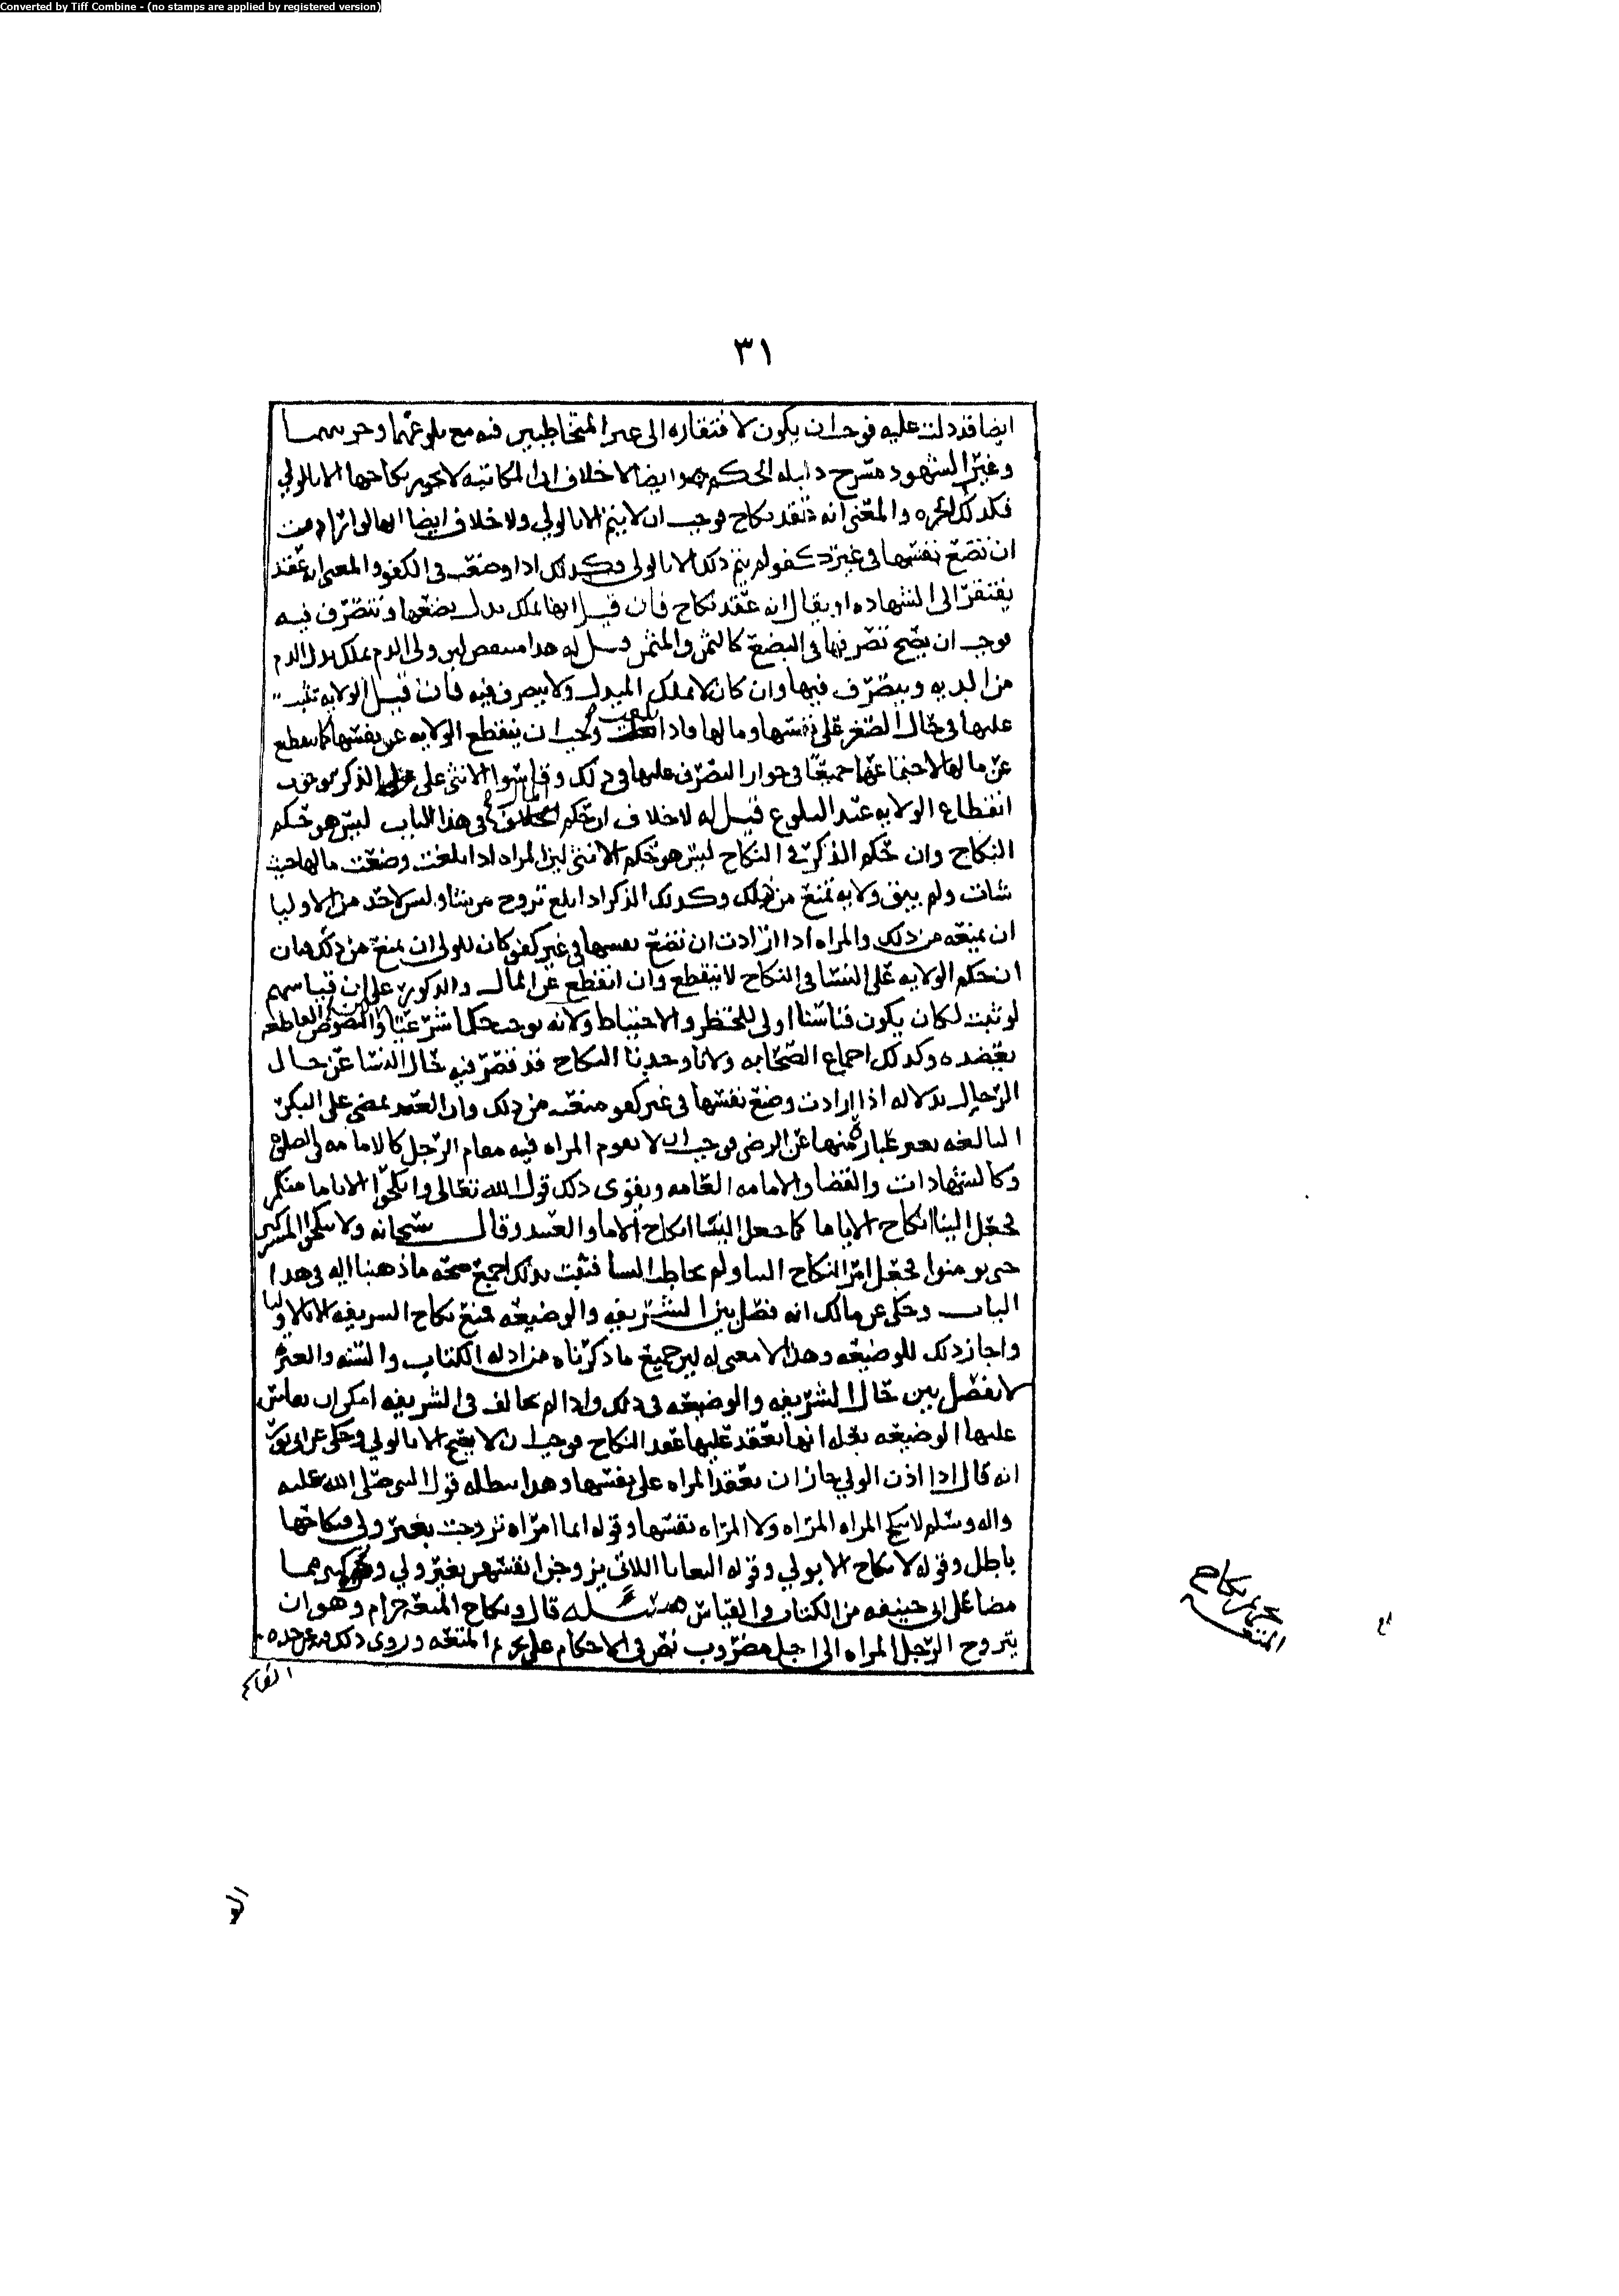 Converted by Tiff Combine - (no stamps are applied by registered version)
٣١
ايضا قد دلت عليه فوجب ان يكون لافتقاره الى غير المتخاطبين فيه مع بلوغهما وحريتهما
وغير الشهود مسرح دليله الحكم هو وايضا لا خلاف ان المكاتبه لا يجوز نكاحها الا بالولي
فكذلك الحره والمعنى انه عقد نكاح فوجب ان لا يتم الا بالولي ولا خلاف ايضا انها لو ارادت
ان تضع نفسها في غير كفو لم يتم ذلك الا بالولي وكذلك اذا وضعت في الكفو والمعنى انه عقد
يفتقر الى الشهاده او يقال انه عقد نكاح فان قيل انها تملك بدل بضعها وتتصرف فيه
فوجب ان يصح تصرفها في البضع كالثمن والمثمن قيل له هذا منتقض لان ولي الدم يملك بدل الدم
من الديه ويتصرف فيها وان كان لا يملك المبدل ولا يتصرف فيه فان قيل الولايه تثبت
عليها في حال الصغر على نفسها ومالها فاذا بلغت وجب ان ينقطع الولايه عن نفسها كما ينقطع
عن مالها لاجتماعهما جميعا في جواز التصرف عليها في ذلك وقاسوا الانثى على الذكر بوجوب
انقطاع الولايه عند البلوغ قيل له لا خلاف ان حكم المال في هذا الباب ليس هو حكم
النكاح وان حكم الذكر في النكاح ليس هو حكم الانثى لان المراه اذا بلغت وضعت مالها حيث
شات ولم يبق ولايه تمنع من ذلك وكذلك الذكر اذا بلغ تزوج من شا وليس لاحد من الاوليا
ان يمنعه من ذلك والمراه اذا ارادت ان تضع نفسها في غير كفو كان للولي ان يمنع من ذلك فبان
ان حكم الولايه على النسا في النكاح لا ينقطع وان انقطع عن المال والذكور على ان قياسهم
لو ثبت لكان يكون قياسنا اولى للحظر والاحتياط ولانه يوجب حكما شرعيا والنصوص القاطعه
تعضده وكذلك اجماع الصحابه ولانا وجدنا النكاح قد قصر فيه حال النسا عن حال
الرجال بدلاله اذا ارادت وضع نفسها في غير كفو منعت من ذلك وان العقد يمضي على البكر
البالغه بغير عباره منها عن الرضى فوجب ان لا تقوم المراه فيه مقام الرجل كالامامه في الصلوه
وكالشهادات والقضا والامامه العامه ويقوى ذلك قول الله تعالى وانكحوا الايامى منكم
فجعل الينا انكاح الايامى كما جعل الينا انكاح الاما والعبيد وقال سبحانه ولا تنكحوا المشركين
حتى يومنوا فجعل امر النكاح الينا ولم يخاطب النسا فثبت بذلك اجمع صحه ما ذهبنا اليه في هذا
الباب وحكى عن مالك انه فصل بين الشريفه والوضيعه فمنع نكاح الشريفه الا بالاوليا
واجاز ذلك للوضيعه وهذا لا معنى له لان جميع ما ذكرناه من ادله الكتاب والسنه والعبره
لا تفصل بين حال الشريفه والوضيعه في ذلك واذا لم يخالف في الشريفه امكن ان يقاس
عليها الوضيعه بعله انها يعقد عليها عقد النكاح فوجب ان لا يصح الا بالولي وحكى عن ابي ثور
انه قال اذا اذن الولي جاز ان تعقد المراه على نفسها وهذا يبطله قول النبي صلى الله عليه
واله وسلم لا تنكح المراه المراه ولا المراه نفسها وقوله ايما امراه تزوجت بغير ولي فنكاحها
باطل وقوله لا نكاح الا بولي وقوله البغايا اللاتي يزوجن انفسهن بغير ولي وغير مما
مضا على ابي حنيفه من الكتاب والقياس مسئله قال ونكاح المتعه حرام وهو ان
يتزوج الرجل المراه الى اجل مضروب نص في الاحكام على تحريم المتعه وروى ذلك فيه عن جده
القاسم
تحريم نكاح
المتعه